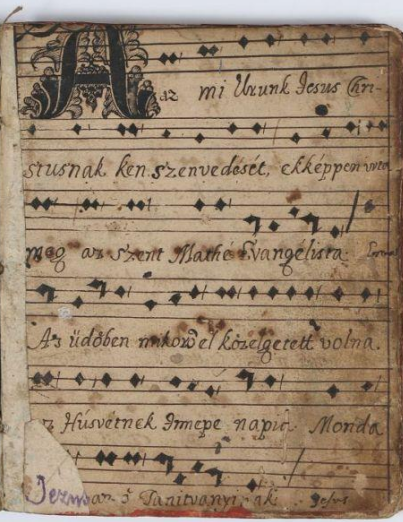 Az mi Urunk Jesus Chri-
stusnak ken szenvedését, ekképpen irta
meg az szent Mathé Evangélista
Az üdőben mikoron el közelgetett volna
az Húsvétnek Innepe napia Monda
Jezus az ő Tanitvanyinak. Jesus